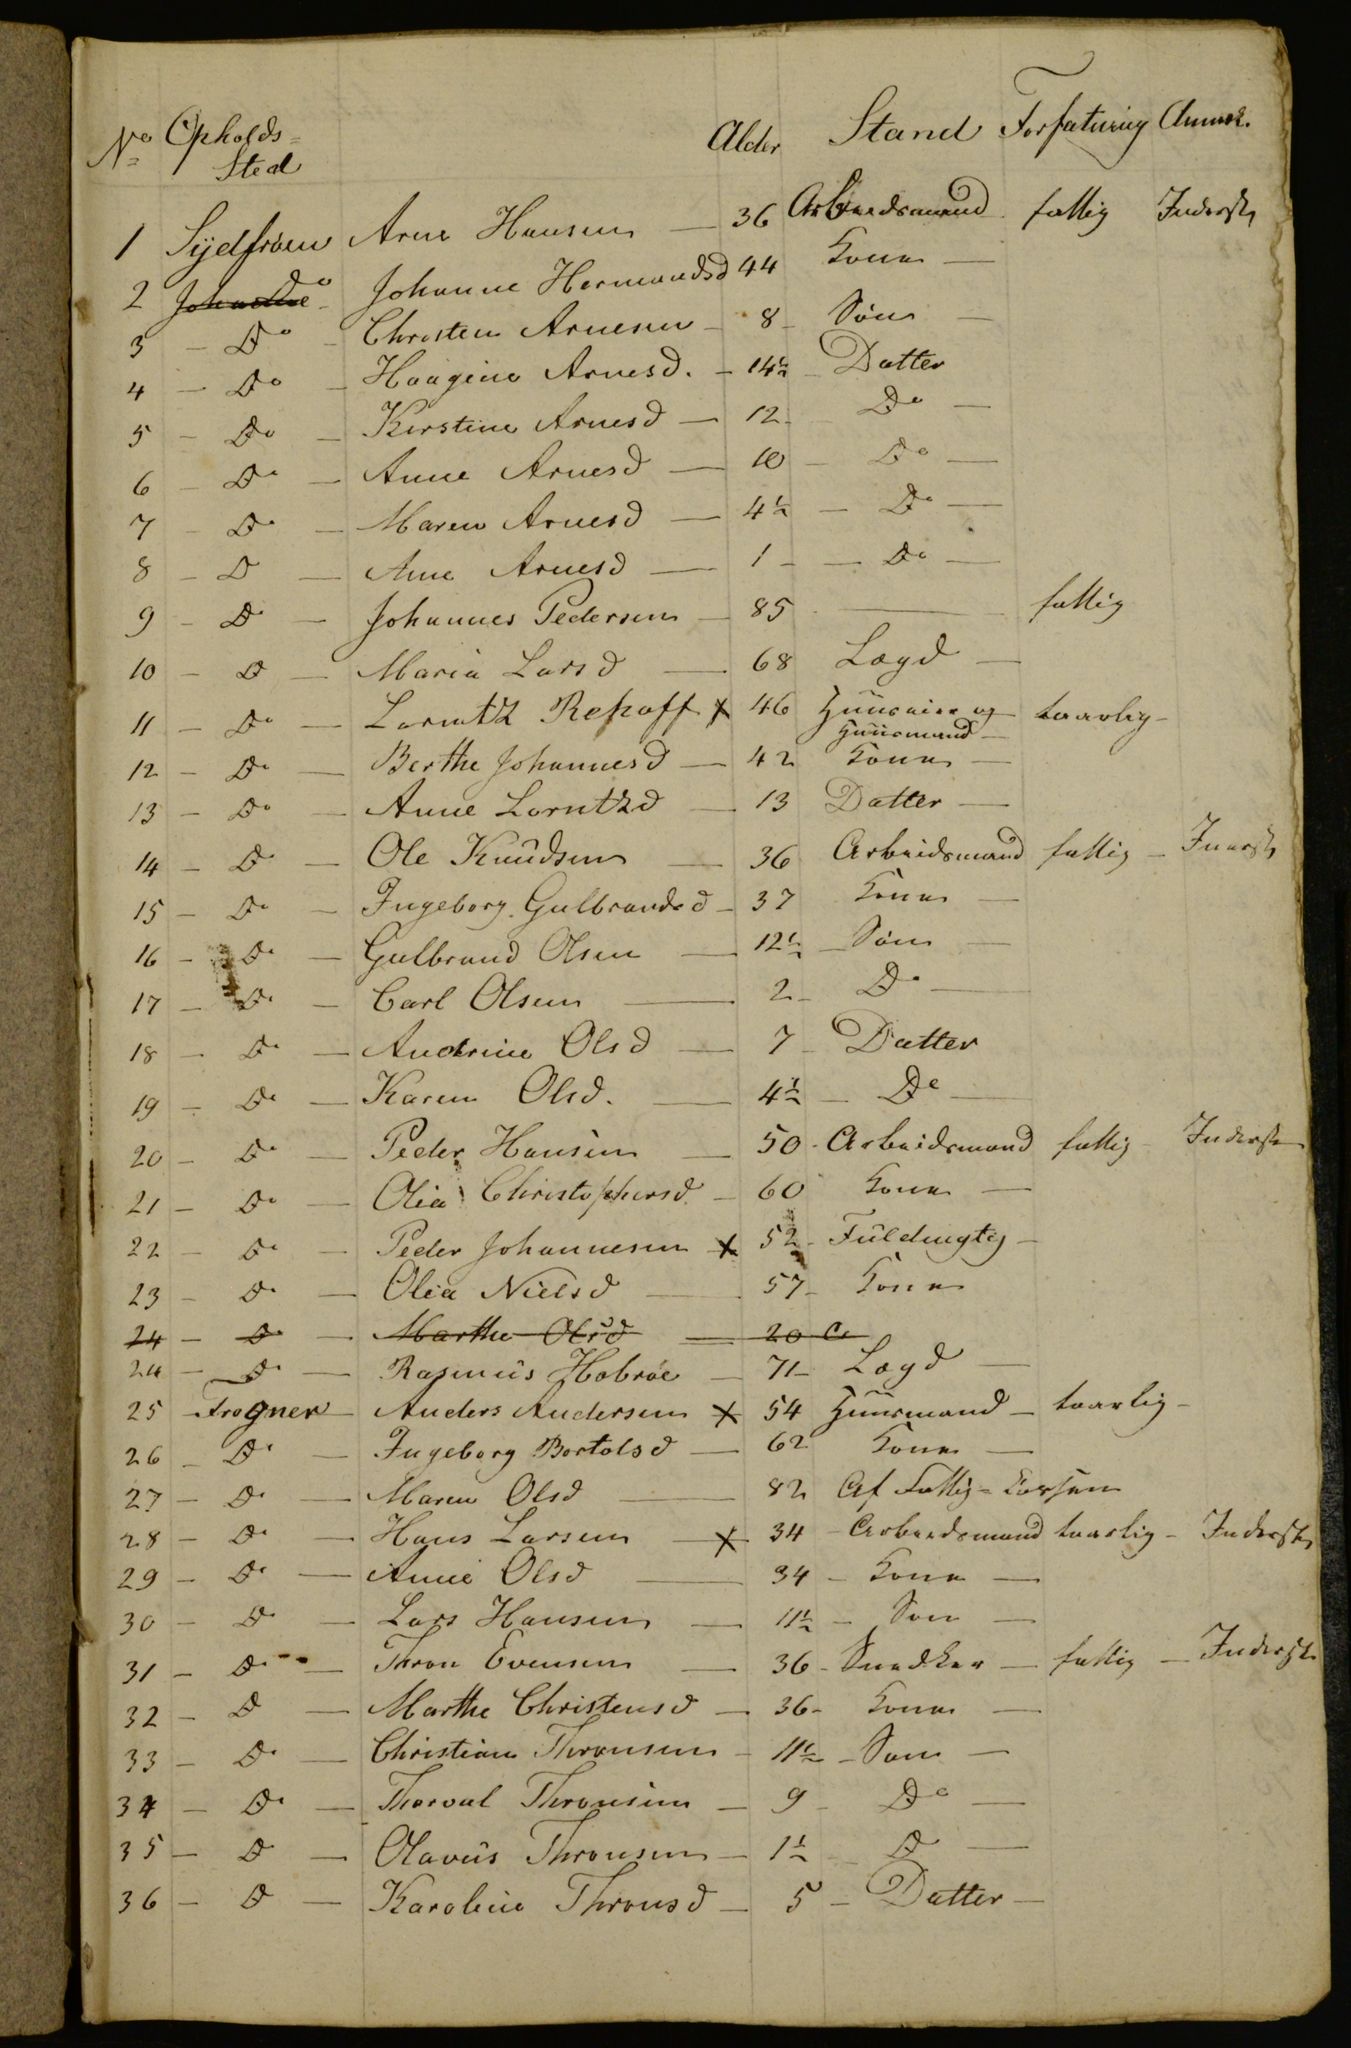 No Opholds= Sted Alder Stand Forfatning Anmærk.
1 Sydfrøen Arne Hansen — 36 Arbeidsmand fattig Inderst
2 Do Johanne Hermandsd 44 Kone —
3 — Do — Christen Arnesen — 8 — Søn —
4 — Do — Haagine Arnesd. — 14½ — Datter
5 — Do — Kirstine Arnesd — 12 — Do —
6 — Do — Anne Arnesd — 10 — Do —
7 — Do — Maren Arnesd — 4½ — Do —
8 — D — Ane Arnesd — 1 — Do —
9 — Do — Johannes Pedersen — 85 — fattig
10 — D — Maria Larsd — 68 Lægd —
11 — Do — Lorentz Rehoff x 46 Huuseier og taarlig —
Huusmand —
12 — Do — Berthe Johannesd — 42 Kone —
13 — Do — Anne Lorntzd — 13 Datter —
14 — D — Ole Knudsen — 36 Arbeidsmand fattig — Inerst
15 — Do — Ingeborg Gulbrandsd — 37 Kone —
16 — Do — Gulbrand Olsen — 12½ — Søn —
17 — Do — Carl Olsen — 2 — Do —
18 — Do — Andrine Olsd — 7 — Datter
19 — Do — Karen Olsd. — 4½ — Do —
20 — Do — Peder Hansen — 50 — Arbeidsmand fattig — Inderst
21 — Do — Olia Christophersd — 60 Kone —
22 — Do — Peder Johannesen x 52 — Fuldmygtig —
23 — Do — Olia Nielsd — 57 — Kone
24 — D — Marthe Olsd — 20
24 — Do — Rasmus Habrøe — 71 — Lægd —
25 — Frogner — Anders Andersen x 54 Huusmand — taarlig —
26 — Do — Ingeborg Bertolsd — 62 Kone —
27 — Do — Maren Olsd — 82 Af Fattig=Kassen
28 — Do — Hans Larsen x 34 — Arbeidsmand taarlig — Inderst
29 — Do — Anne Olsd — 34 — Kone —
30 — D — Lars Hansen — 11½ — Søn —
31 — Do — Thron Evensen — 36 — Snedker — fattig — Inderst
32 — D — Marthe Christensd — 36 — Kone —
33 — Do — Christian Thronsen — 11½ — Søn —
34 — Do — Thorval Thronsen — 9 — Do —
35 — D — Olavus Thronsen — 1½ — D —
36 — D — Karoline Thronsd — 5 — Datter —